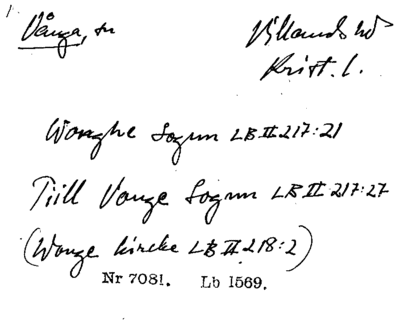 1.
Vånga, sn Villands hd
Krist. l.
Wonghe Sognn LB II 217:21
Tiill Vonge Sognn LB II 217:27
(Wonge kircke LB II 218:2)
Nr 7081. Lb 1569.